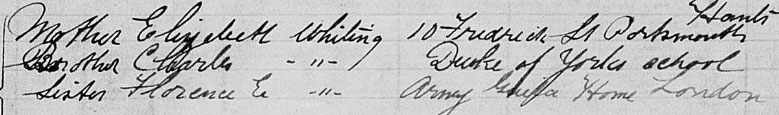 Mother Elizabeth Whiting 10 Fredrick St Portsmouth Hants
Brother Charles -"- Duke of Yorks school
Sister Florence E. -"- Army Home London